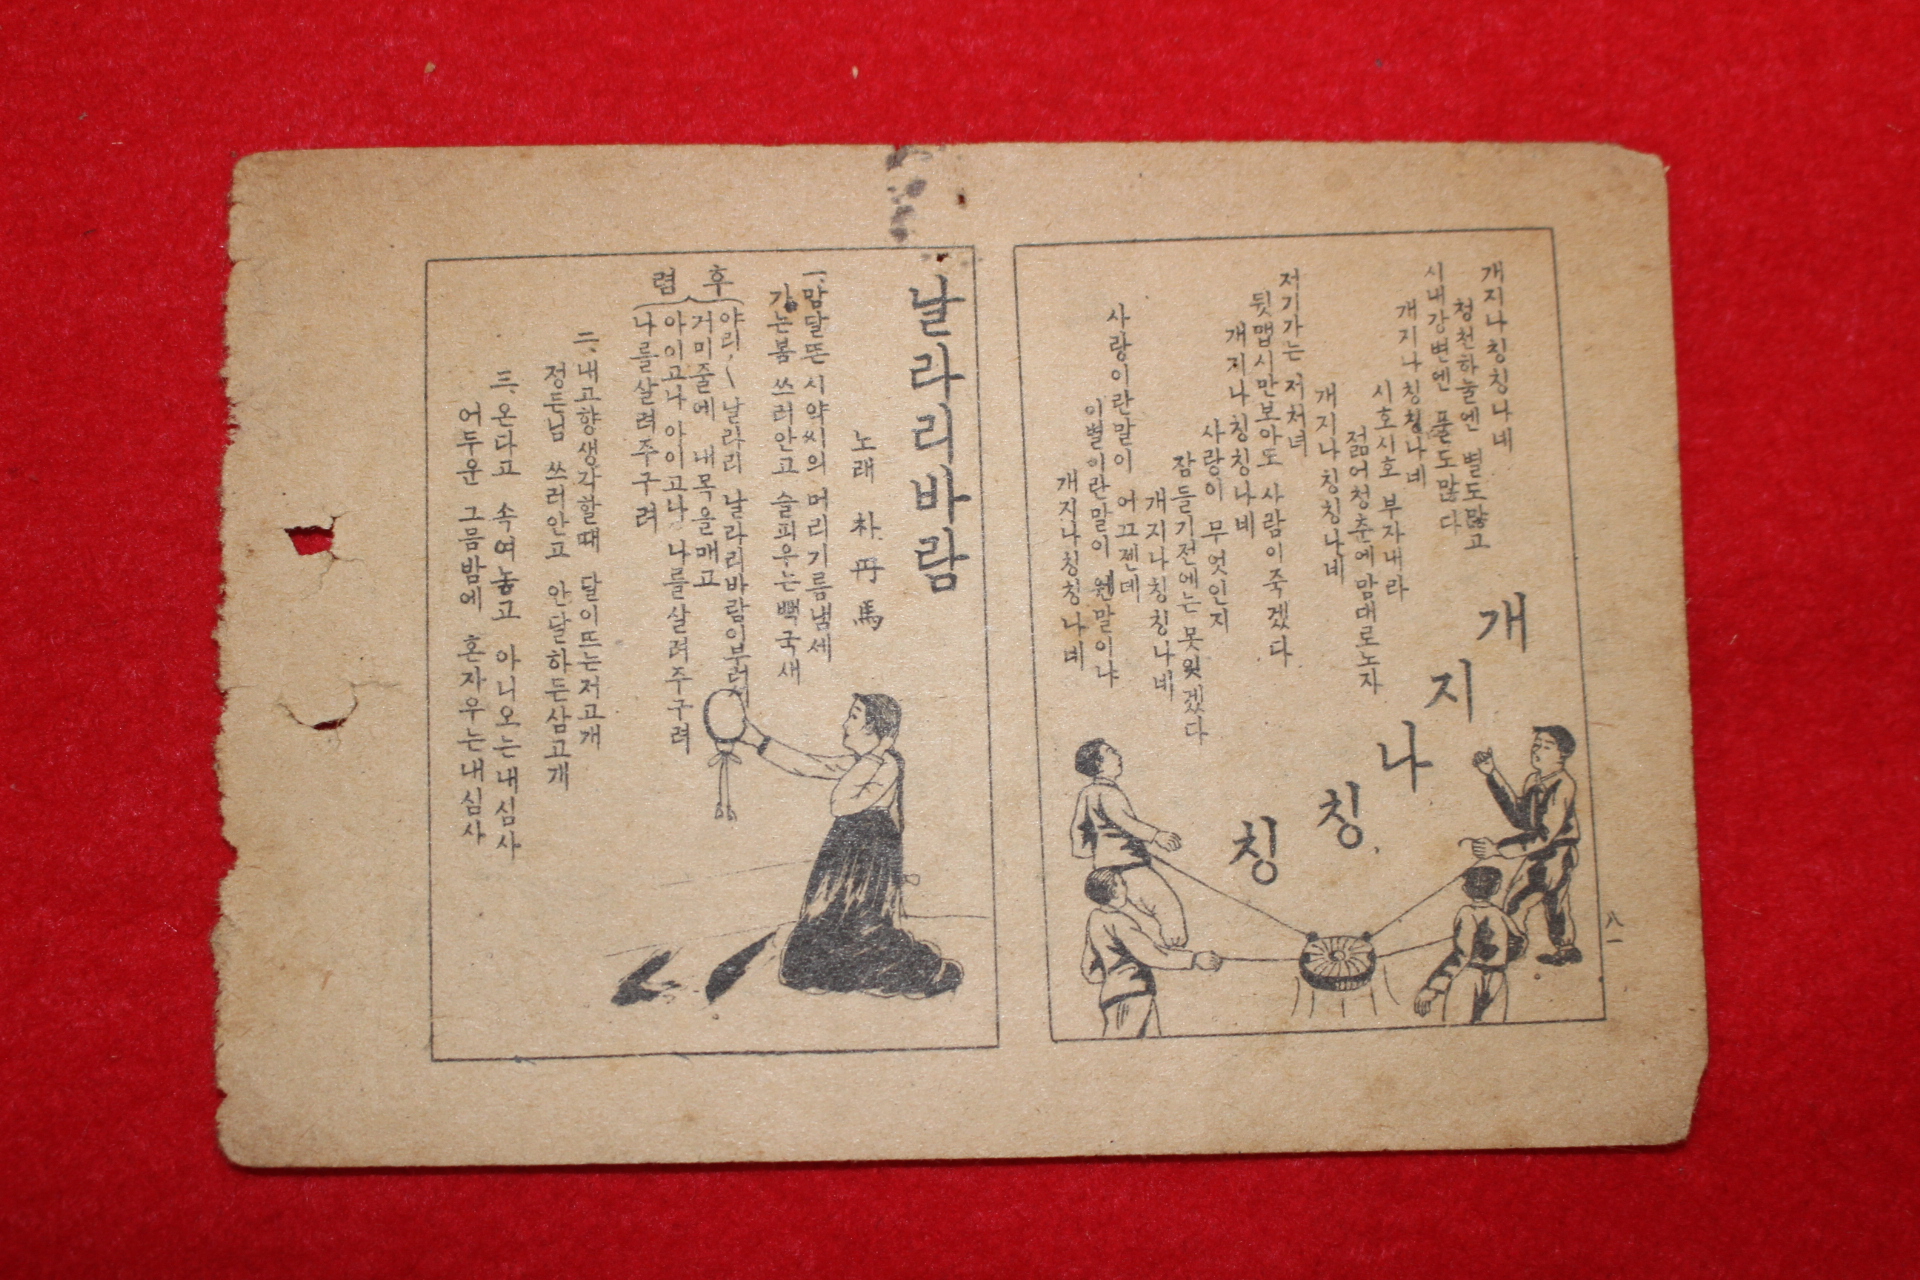 개지나칭칭
개지나칭칭나네
청천하눌엔 별도많고
시내강변엔 풀도많다
개지나칭칭나네
시호시호 부자내라
젊어청춘에맘대로노자
개지나칭칭나네
저기가는 저처녀
뒷맵시만보아도 사람이죽겠다
개지나칭칭나네
사랑이 무엇인지
잠들기전에는못잊겠다
개지나칭칭나네
사랑이란말이 어끄젠데
이별이란말이 웬말이냐
개지나칭칭나네
八一
날라리바람
노래 朴丹馬
一、맘달뜬 시약씨의 머리기름냄세
가는봄 쓰러안고 슬피우는뻑국새
후렴
야리〱 날라리 날라리바람이부러서
거미줄에 내목을매고
아이고나 아이고나 나를살려주구려
나를살려주구려
二、내고향생각할때 달이뜨는저고개
정든님 쓰러안고 안달하든삼고개
三、온다고 속여놓고 아니오는내심사
어두운 그믐밤에 혼자우는내심사